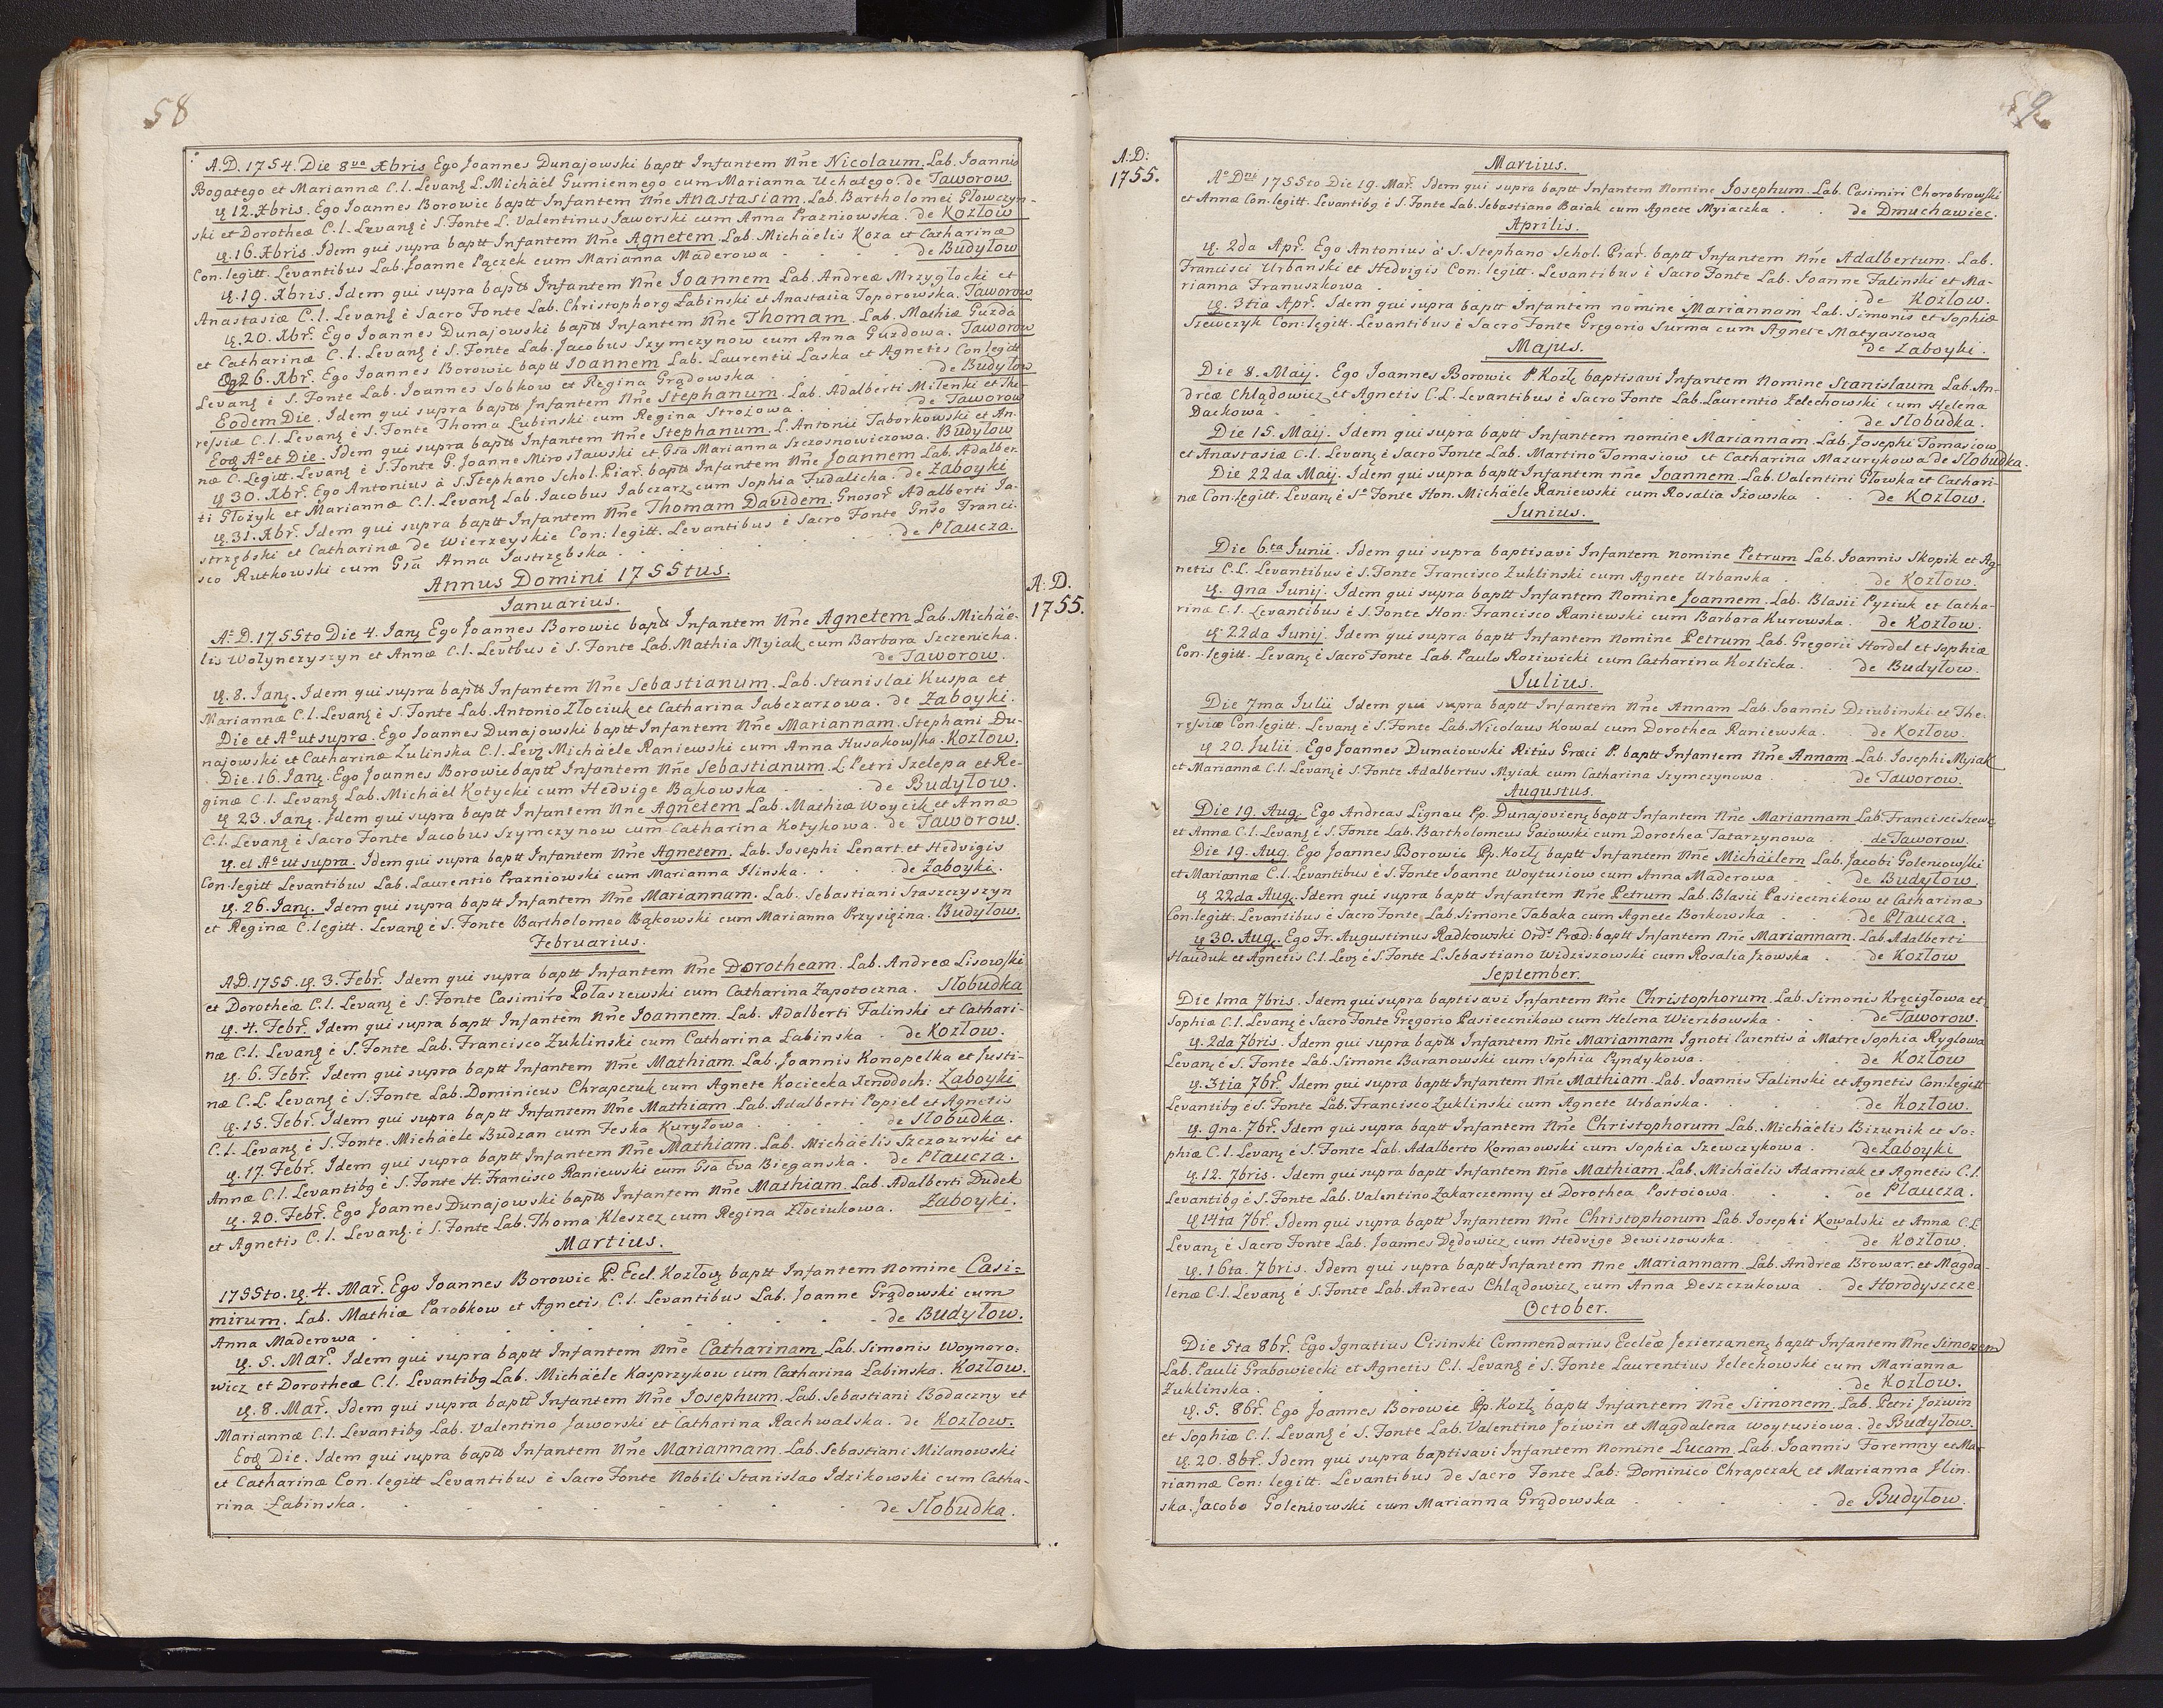 58
A.D. 1754. Die 8va Xbris Ego Joannes Dunajowski baptt Infantem Nñe Nicolaum. Lab. Joannis
Bogatego et Mariannæ C.l. Levanȝ L. Michäel Gumiennego cum Marianna Uchatego. de Taworow.
ɥ 12. Xbris. Ego Joannes Borowic baptt Infantem Nñe Anastasiam. Lab. Bartholomei Głowczyn-
ski et Dorotheæ C.l. Levanȝ è S. Fonte L. Valentinus Jaworski cum Anna Prazniowska. de Kozłow
ɥ. 16. Xbris. Idem qui supra baptt Infantem Nñe Agnetem. Lab. Michäelis Koza et Catharinæ
Con. legitt. Levantibus Lab. Joanne Pączek cum Marianna Maderowa . . . de Budyłow
ɥ. 19. Xbris. Idem qui supra baptt Infantem Nñe Joannem Lab. Andreæ Mrzygłocki et
Anastasiæ C.l. Levanȝ è Sacro Fonte Lab. Christophorg Łabinski et Anastasia Toporowska. Taworow
ɥ. 20. Xbř. Ego Joannes Dunajowski baptt Infantem Nñe Thomam. Lab. Mathiæ Guzda
et Catharinæ C.l. Levanȝ è S. Fonte Lab. Jacobus Szymczynow cum Anna Guzdowa. Taworow
26. Xbř. Ego Joannes Borowic baptt Joannem Lab. Laurentii Laska et Agnetis Con legitt
Levanȝ è S. Fonte Lab. Joannes Sobkow et Regina Grądowska . . . de Budyłow
Eodem Die. Idem qui supra baptt Infantem Nñe Stephanum. Lab. Adalberti Milenki et The-
ressiæ C.l. Levanȝ è S. Fonte Thoma Lubinski cum Regina Strożowa. . . de Taworow
Eoȝ A° et Die. Idem qui supra baptt Infantem Nñe Stephanum. L. Antonii Taborkowski et An-
næ C. Legitt. Levanȝ è S. Fonte G. Joanne Mirosławski et Gsa Marianna Szczosnowiczowa. Budyłow
ɥ 30. Xbř. Ego Antonius à S. Stephano Schol. Piař. baptt Infantem Nñe Joannem Lab. Adalber-
ti Głożyk et Mariannæ C.l. Levanȝ Lab. Jacobus Jabczarz cum Sophia Fudalicha. de Zaboyki
ɥ. 31. Xbř. Idem qui supra baptt Infantem Nñe Thomam Davidem. Gnosoř Adalberti Ja-
strzębski et Catharinæ de Wierzeyskie Con: legitt. Levantibus è Sacro Fonte Gnso Franci-
sco Rutkowski cum Gsa Anna Jastrzębska . . . de Płaucza.
Annus Domini 1755tus.
A. D.
1755.
Januarius.
A° D. 1755to Die 4. Janȝ Ego Joannes Borowic baptt Infantem Nñe Agnetem Lab. Michäe-
lis Wołynczyszyn et Annæ C.l. Levtbus è S. Fonte Lab. Mathia Myiak cum Barbara Szczenicha.
de Taworow.
ɥ. 8. Janȝ. Idem qui supra baptt Infantem Nñe Sebastianum. Lab. Stanislai Kuspa et
Mariannæ C.l. Levanȝ è S. Fonte Lab. Antonio Złociuk et Catharina Jabczarzowa. de Zaboyki.
Die et A° ut supra. Ego Joannes Dunajowski baptt Infantem Nñe Mariannam. Stephani Du-
najowski et Catharinæ Zulinska C.l. Levȝ Michäele Raniewski cum Anna Husakowska. Kozłow.
Die. 16. Janȝ. Ego Joannes Borowic baptt Infantem Nñe Sebastianum. L. Petri Szelepa et Re-
ginæ C.l. Levanȝ Lab. Michäel Kotycki cum Hedvige Bąkowska . . de Budyłow.
ɥ 23. Janȝ. Idem qui supra baptt Infantem Nñe Agnetem Lab. Mathiæ Woycik et Annæ
C.l. Levanȝ è Sacro Fonte Jacobus Szymczynow cum Catharina Kotykowa. de Taworow.
ɥ. et A° ut supra. Idem qui supra baptt Infantem Nñe Agnetem. Lab. Josephi Lenart. et Hedvigis
Con. legitt Levantibus Lab. Laurentio Prazniowski cum Marianna Ilinska. . . de Zaboyki.
ɥ. 26. Janȝ. Idem qui supra baptt Infantem Nñe Mariannam. Lab. Sebastiani Iraszczyszyn
et Reginæ C. legitt. Levanȝ è S. Fonte Bartholomeo Bąkowski cum Marianna Przysiężna. Budyłow.
Februarius.
A.D. 1755. ɥ. 3. Febř. Idem qui supra baptt Infantem Nñe Dorotheam. Lab. Andreæ Lisowski
et Dorotheæ C.l. Levanȝ è S. Fonte Casimiro Połaszewski cum Catharina Zapotoczna. Słobudka
ɥ. 4. Febř. Idem qui supra baptt Infantem Nñe Joannem. Lab. Adalberti Falinski et Cathari-
næ C.l. Levanȝ è S. Fonte Lab. Francisco Zuklinski cum Catharina Łabinska . de Kozłow.
ɥ. 6. Febř. Idem qui supra baptt Infantem Nñe Mathiam. Lab. Joannis Konopelka et Justi-
næ C.l. Levanȝ è S. Fonte Lab. Dominicus Chrapczuk cum Agnete Kociecka Xenodoch: Zaboyki
ɥ. 15. Febř. Idem qui supra baptt Infantem Nñe Mathiam. Lab. Adalberti Popiel et Agnetis
C.l. Levanȝ è S. Fonte. Michäele Budzan cum Feska Kuryłowa . . . de Słobudka.
ɥ. 17. Febř. Idem qui supra baptt Infantem Nñe Mathiam. Lab. Michäelis Szczourski et
Annæ C.l. Levantibg è S. Fonte H. Francisco Raniewski cum Gsa Eva Bieganska. de Płaucza.
ɥ. 20. Febř. Ego Joannes Dunajowski baptt Infantem Nñe Mathiam. Lab. Adalberti Dudek
et Agnetis C.l. Levanȝ. è S. Fonte Lab. Thoma Kleszcz cum Regina Złociukowa. Zaboyki.
Martius.
1755to. ɥ. 4. Mař. Ego Joannes Borowic P. Eccl. Kozłovȝ baptt Infantem Nomine Casi=
mirum. Lab. Mathiæ Parobkow et Agnetis. C.l. Levantibus Lab. Joanne Grądowski cum
Anna Maderowa . . . de Budyłow.
ɥ. 5. Mař. Idem qui supra baptt Infantem Nñe Catharinam. Lab. Simonis Woynoro-
wicz et Dorotheæ C.l. Levantibg Lab. Michäele Kasprzykow cum Catharina Łabinska. Kozłow.
ɥ. 8. Mař. Idem qui supra baptt Infantem Nñe Josephum. Lab. Sebastiani Bodaczny et
Mariannæ C.l. Levantibg Lab. Valentino Jaworski et Catharina Rachwalska. de Kozłow.
Eoȝ Die. Idem qui supra baptt Infantem Nñe Mariannam. Lab. Sebastiani Milanowski
et Catharinæ Con. legitt Levantibus è Sacro Fonte Nobili Stanislao Idzikowski cum Catha-
rina Łabinska. . . . de Słobudka.
A.D:
1755.
Martius.
A° Dni 1755to Die 19. Mař. Idem qui supra baptt Infantem Nomine Josephum. Lab. Casimiri Chorobrowski
et Annæ Con. legitt. Levantibg è S. Fonte Lab. Sebastiano Baiak cum Agnete Myiaczka . . de Dmuchawiec.
Aprilis.
ɥ. 2da Apř. Ego Antonius à S. Stephano Schol. Piař. baptt Infantem Nñe Adalbertum. Lab.
Francisci Urbanski et Hedvigis Con: legitt. Levantibus è Sacro Fonte Lab. Joanne Falinski et Ma-
rianna Franuszkowa . . . de Kozłow.
ɥ. 3tia Apř. Idem qui supra baptt Infantem nomine Mariannam Lab. Simonis et Sophiæ
Szewczyk Con: legitt. Levantibus è Sacro Fonte Gregorio Surma cum Agnete Matyaszowa
de Zaboyki.
Majus.
Die 8. Maij. Ego Joannes Borowic P. Kozłȝ baptisavi Infantem Nomine Stanislaum Lab. An-
dreæ Chlądowicz et Agnetis C.L. Levantibus è Sacro Fonte Lab. Laurentio Zelechowski cum Helena
Dackowa . . . de Słobudka.
Die 15. Maij. Idem qui supra baptt Infantem nomine Mariannam. Lab. Josephi Tomasiow
et Anastasiæ C.l. Levanȝ è Sacro Fonte Lab. Martino Tomasiow et Catharina Mazurykowa de Słobudka.
Die 22da Maij. Idem qui supra baptt Infantem nñe Joannem. Lab. Valentini Głowka et Cathari-
næ Con. legitt. Levanȝ è S° Fonte Hon. Michäele Raniewski cum Rosalia Iżowska . . de Kozłow.
Junius.
Die 6.ta Junii. Idem qui supra baptisavi Infantem nomine Petrum Lab. Joannis Skopik et Ag-
netis C.L. Levantibus è S. Fonte Francisco Zuklinski cum Agnete Urbanska . . de Kozłow.
ɥ. 9na Junij. Idem qui supra baptt Infantem Nomine Joannem. Lab. Blasii Pyziuk et Catha-
rinæ C.l. Levantibus è S. Fonte Hon: Francisco Raniewski cum Barbara Kurowska. de Kozłow.
ɥ 22da Junij. Idem qui supra baptt Infantem nomine Petrum Lab. Gregorii Hordel et Sophiæ
Con. legitt. Levanȝ è Sacro Fonte Lab. Paulo Roziwicki cum Catharina Kozlicka. . de Budyłow.
Julius.
Die 7ma Julii Idem qui supra baptt Infantem Nñe Annam Lab. Joannis Dziubinski et The-
ressiæ Con. legitt. Levanȝ è S. Fonte Lab. Nicolaus Kowal cum Dorothea Raniewska. . de Kozłow.
ɥ 20. Julii. Ego Joannes Dunaiowski Ritûs Græci P. baptt Infantem Nñe Annam. Lab. Josephi Myiak
et Mariannæ C.l. Levanȝ è S. Fonte Adalbertus Myiak cum Catharina Szymczynowa . . de Taworow.
Augustus.
Die 19. Augȝ Ego Andreas Lignau Pp. Dunajovienȝ baptt Infantem Nñe Mariannam Lab. Francisci Szewc
et Annæ C.l. Levanȝ è S. Fonte Lab. Bartholomeus Gaiowski cum Dorothea Tatarzynowa . de Taworow.
Die 19. Aug. Ego Joannes Borowic Pp. Kozłȝ baptt Infantem Nñe Michäelem Lab. Jacobi Goleniowski
et Mariannæ C.l. Levantibus è S. Fonte Joanne Woytusiow cum Anna Maderowa . . de Budyłow.
ɥ 22da Augȝ. Idem qui supra baptt Infantem Nñe Petrum Lab. Blasii Pasiecznikow et Catharinæ
Con. legitt. Levantibus è Sacro Fonte, Lab. Simone Tabaka cum Agnete Borkowska . . de Płaucza.
ɥ 30. Augȝ. Ego Fr. Augustinus Radkowski Ord: Præd: baptt Infantem Nñe Mariannam. Lab. Adalberti
Hauduk et Agnetis C.l. Levȝ è S. Fonte L. Sebastiano Widziszowski cum Rosalia Iżowska . . de Kozłow
September.
Die 1ma 7bris. Idem qui supra baptisavi Infantem Nñe Christophorum. Lab. Simonis Kręcigłowa et
Sophiæ C.l. Levanȝ è Sacro Fonte Gregorio Pasiecznikow cum Helena Wierzbowska . . . de Taworow.
ɥ. 2da 7bris. Idem qui supra baptt Infantem Nñe Mariannam Ignoti Parentis à Matre Sophia Ryglowa
Levanȝ è S. Fonte Lab. Simone Baranowski cum Sophia Pyndykowa. . . de Kozłow
ɥ. 3tia 7bř. Idem qui supra baptt Infantem Nñe Mathiam. Lab. Joannis Falinski et Agnetis Con: legitt
Levantibg è S. Fonte Lab. Francisco Zuklinski cum Agnete Urbańska. . . de Kozłow.
ɥ. 9na. 7bř. Idem qui supra baptt Infantem Nñe Christophorum Lab. Michäelis Bizunik et So-
phiæ C.l. Levanȝ è S. Fonte Lab. Adalberto Komarowski cum Sophia Szewczykowa. . de Zaboyki
ɥ. 12. 7bris. Idem qui supra baptt Infantem Nñe Mathiam. Lab. Michäelis Adamiak et Agnetis C.l.
Levantibg è S. Fonte Lab. Valentino Zakarczemny et Dorothea Postoiowa. . . de Płaucza.
ɥ 14ta 7bř. Idem qui supra baptt Infantem Nñe Christophorum Lab. Josephi Kowalski et Annæ C.l.
Levanȝ è Sacro Fonte Lab. Joannes Dędowicz cum Hedvige Dewiszowska. . . de Kozłow.
ɥ. 16ta. 7bris. Idem qui supra baptt Infantem Nñe Mariannam. Lab. Andreæ Browar. et Magda-
lenæ C.l. Levanȝ è S. Fonte Lab. Andreas Chlądowicz cum Anna Deszczukowa . de Horodyszcze
October.
Die 5ta 8bř. Ego Ignatius Cisinski Commendarius Eccleæ Jezierzanenȝ baptt Infantem Nñe Simonem
Lab. Pauli Grabowiecki et Agnetis C.l. Levanȝ è S. Fonte Laurentius Zelechowski cum Marianna
Zuklinska. . . . de Kozłow.
ɥ. 5. 8bř. Ego Joannes Borowic Pp. Kozłȝ baptt Infantem Nñe Simonem. Lab. Petri Joźwin
et Sophiæ C.l. Levanȝ è S. Fonte Lab. Valentino Joźwin et Magdalena Woytusiowa. de Budyłow.
ɥ. 20. 8bř. Idem qui supra baptisavi Infantem Nomine Lucam. Lab. Joannis Foremny et Ma-
riannæ Con: legitt. Levantibus de Sacro Fonte Lab: Dominico Chrapczak et Marianna Ilin-
ska. Jacobo Goleniowski cum Marianna Grądowska . . . de Budyłow.